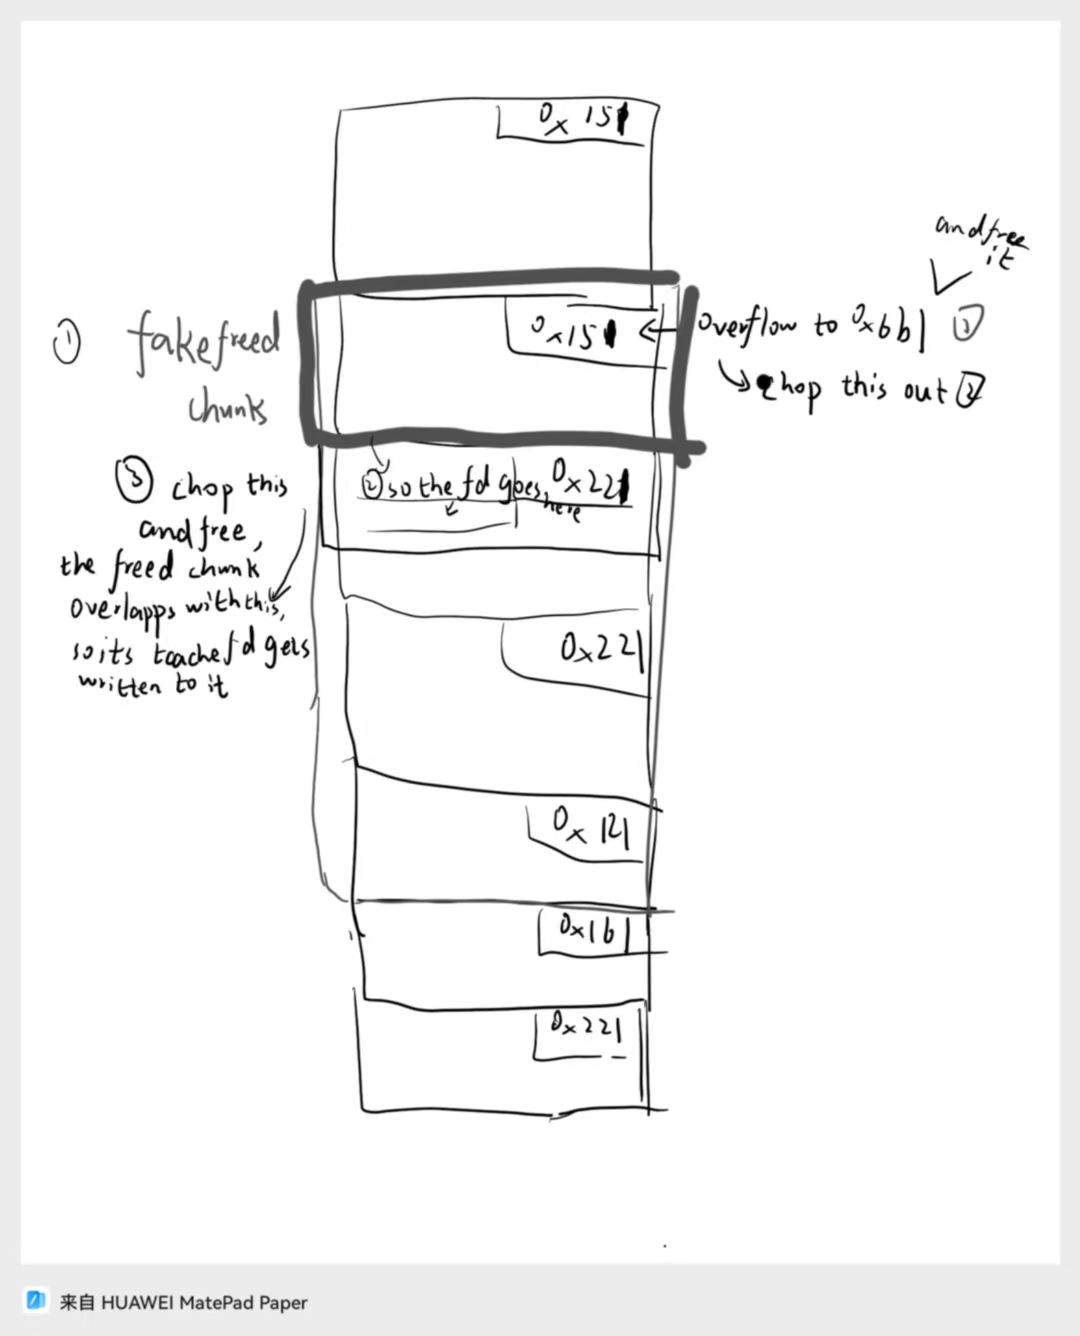 0x151
and free
it
① fake freed
chunks
0x151
overflow to 0x6b1 ①
chop this out ②
③ chop this
and free,
the freed chunk
overlapps with this,
so its tcache fd gets
written to it
② so the fd goes here
0x221
0x221
0x121
0x161
0x221
来自 HUAWEI MatePad Paper